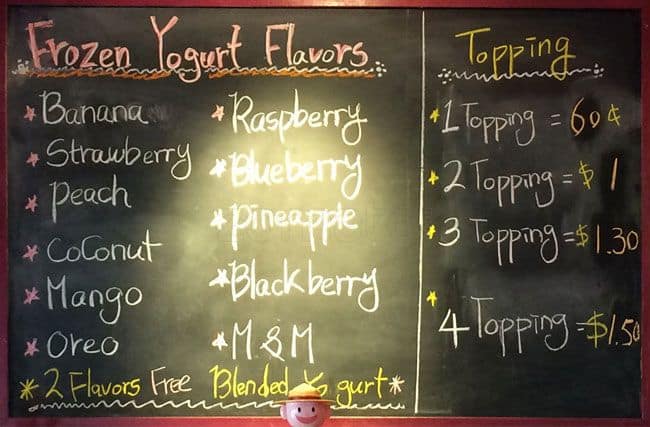 Frozen Yogurt Flavors
* Banana
* Strawberry
* Peach
* Coconut
* Mango
* Oreo
* Raspberry
* Blueberry
* Pineapple
* Blackberry
* M & M
* 2 Flavors Free Blended Yogurt *
Topping
* 1 Topping = 60¢
* 2 Topping = $1
* 3 Topping = $1.30
* 4 Topping = $1.50